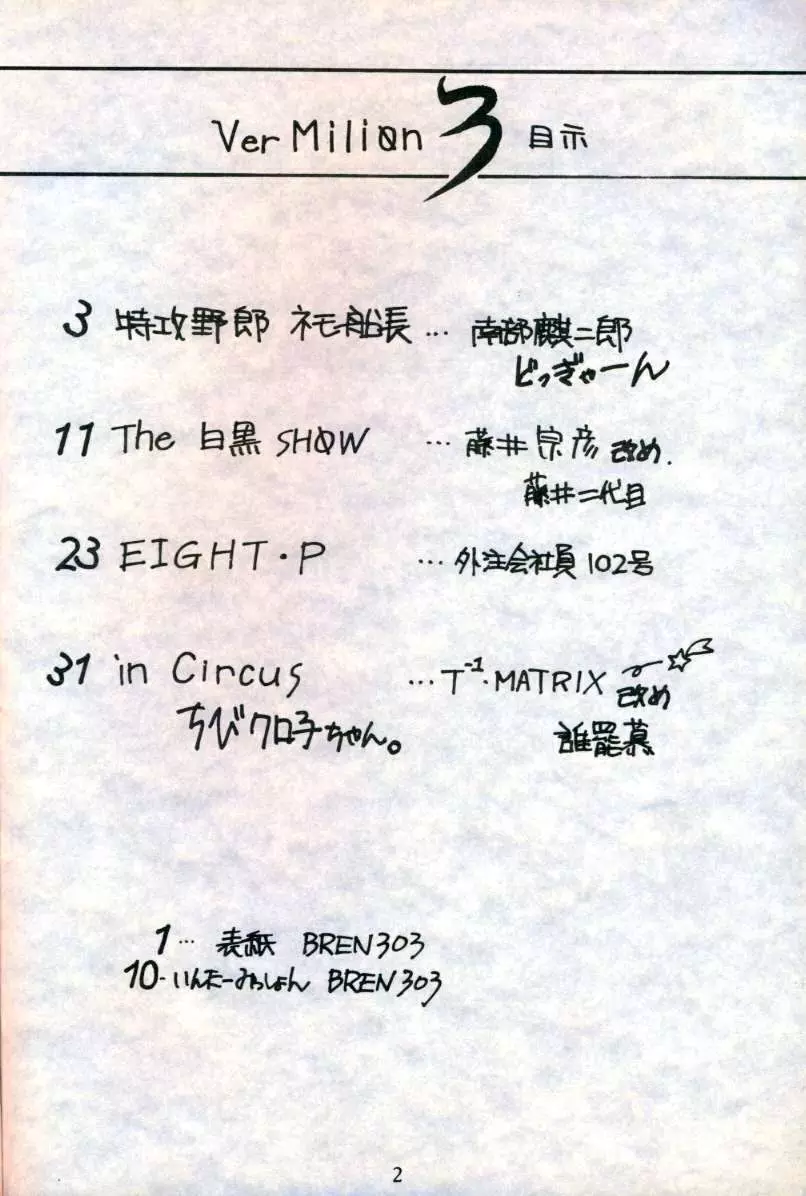 Ver Miliøn 3 目示
3 特攻野郎 ネモ船長 … 南部麒二郎
どっぎゃーん
11 The 白黒 SHØW … 藤井宗彦 改め.
藤井二代目
23 EIGHT・P … 外注会社員 102号
31 in Circus … T⁻¹・MATRIX 改め
ちびクロ子ちゃん。 誰罷慕
1… 表紙 BREN303
10-いんたーみっしょん BREN303
2